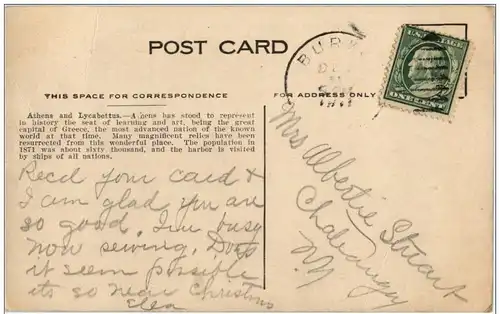 POST CARD
THIS SPACE FOR CORRESPONDENCE
FOR ADDRESS ONLY
BURK
U.S. POSTAGE
Athens and Lycabettus.—Athens has stood to represent
in history the seat of learning and art, being the great
capital of Greece, the most advanced nation of the known
world at that time. Many magnificent relics have
been resurrected from this wonderful place. The population in
1871 was about sixty thousand, and the harbor is visited
by ships of all nations.
Recd your card &
I am glad you are
so good. I'm busy
now sewing. Don't
it seem possible
its so near Christmas
Ella
Mrs Albertie Stuart
Chateaugay
N.Y.